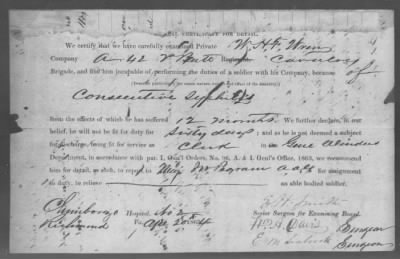 CERTIFICATE FOR DETAIL.
We certify that we have carefully examined Private W. H. F. Wren
Company A 42 V Batt Regiment, Cavalry
Brigade, and find him incapable of performing the duties of a soldier with his Company, because of
Consecutive Syphilis
from the effects of which he has suffered 12 months. We further declare, in our
belief, he will not be fit for duty for Sixty days; and as he is not deemed a subject
for discharge, being fit for service as Clerk in Genl Winders
Department, in accordance with par. I, Genl Orders, No. 96, A. & I. Genl's Office, 1863, we recommend him
for detail, as such, to report to Maj for assignment
to duty, to relieve an able bodied soldier.
Hospital, No 2
Richmond Va Apr 20th 1864
Smith
Senior Surgeon for Examining Board.
Wm. A. Davis Surgeon
E. M. Surgeon